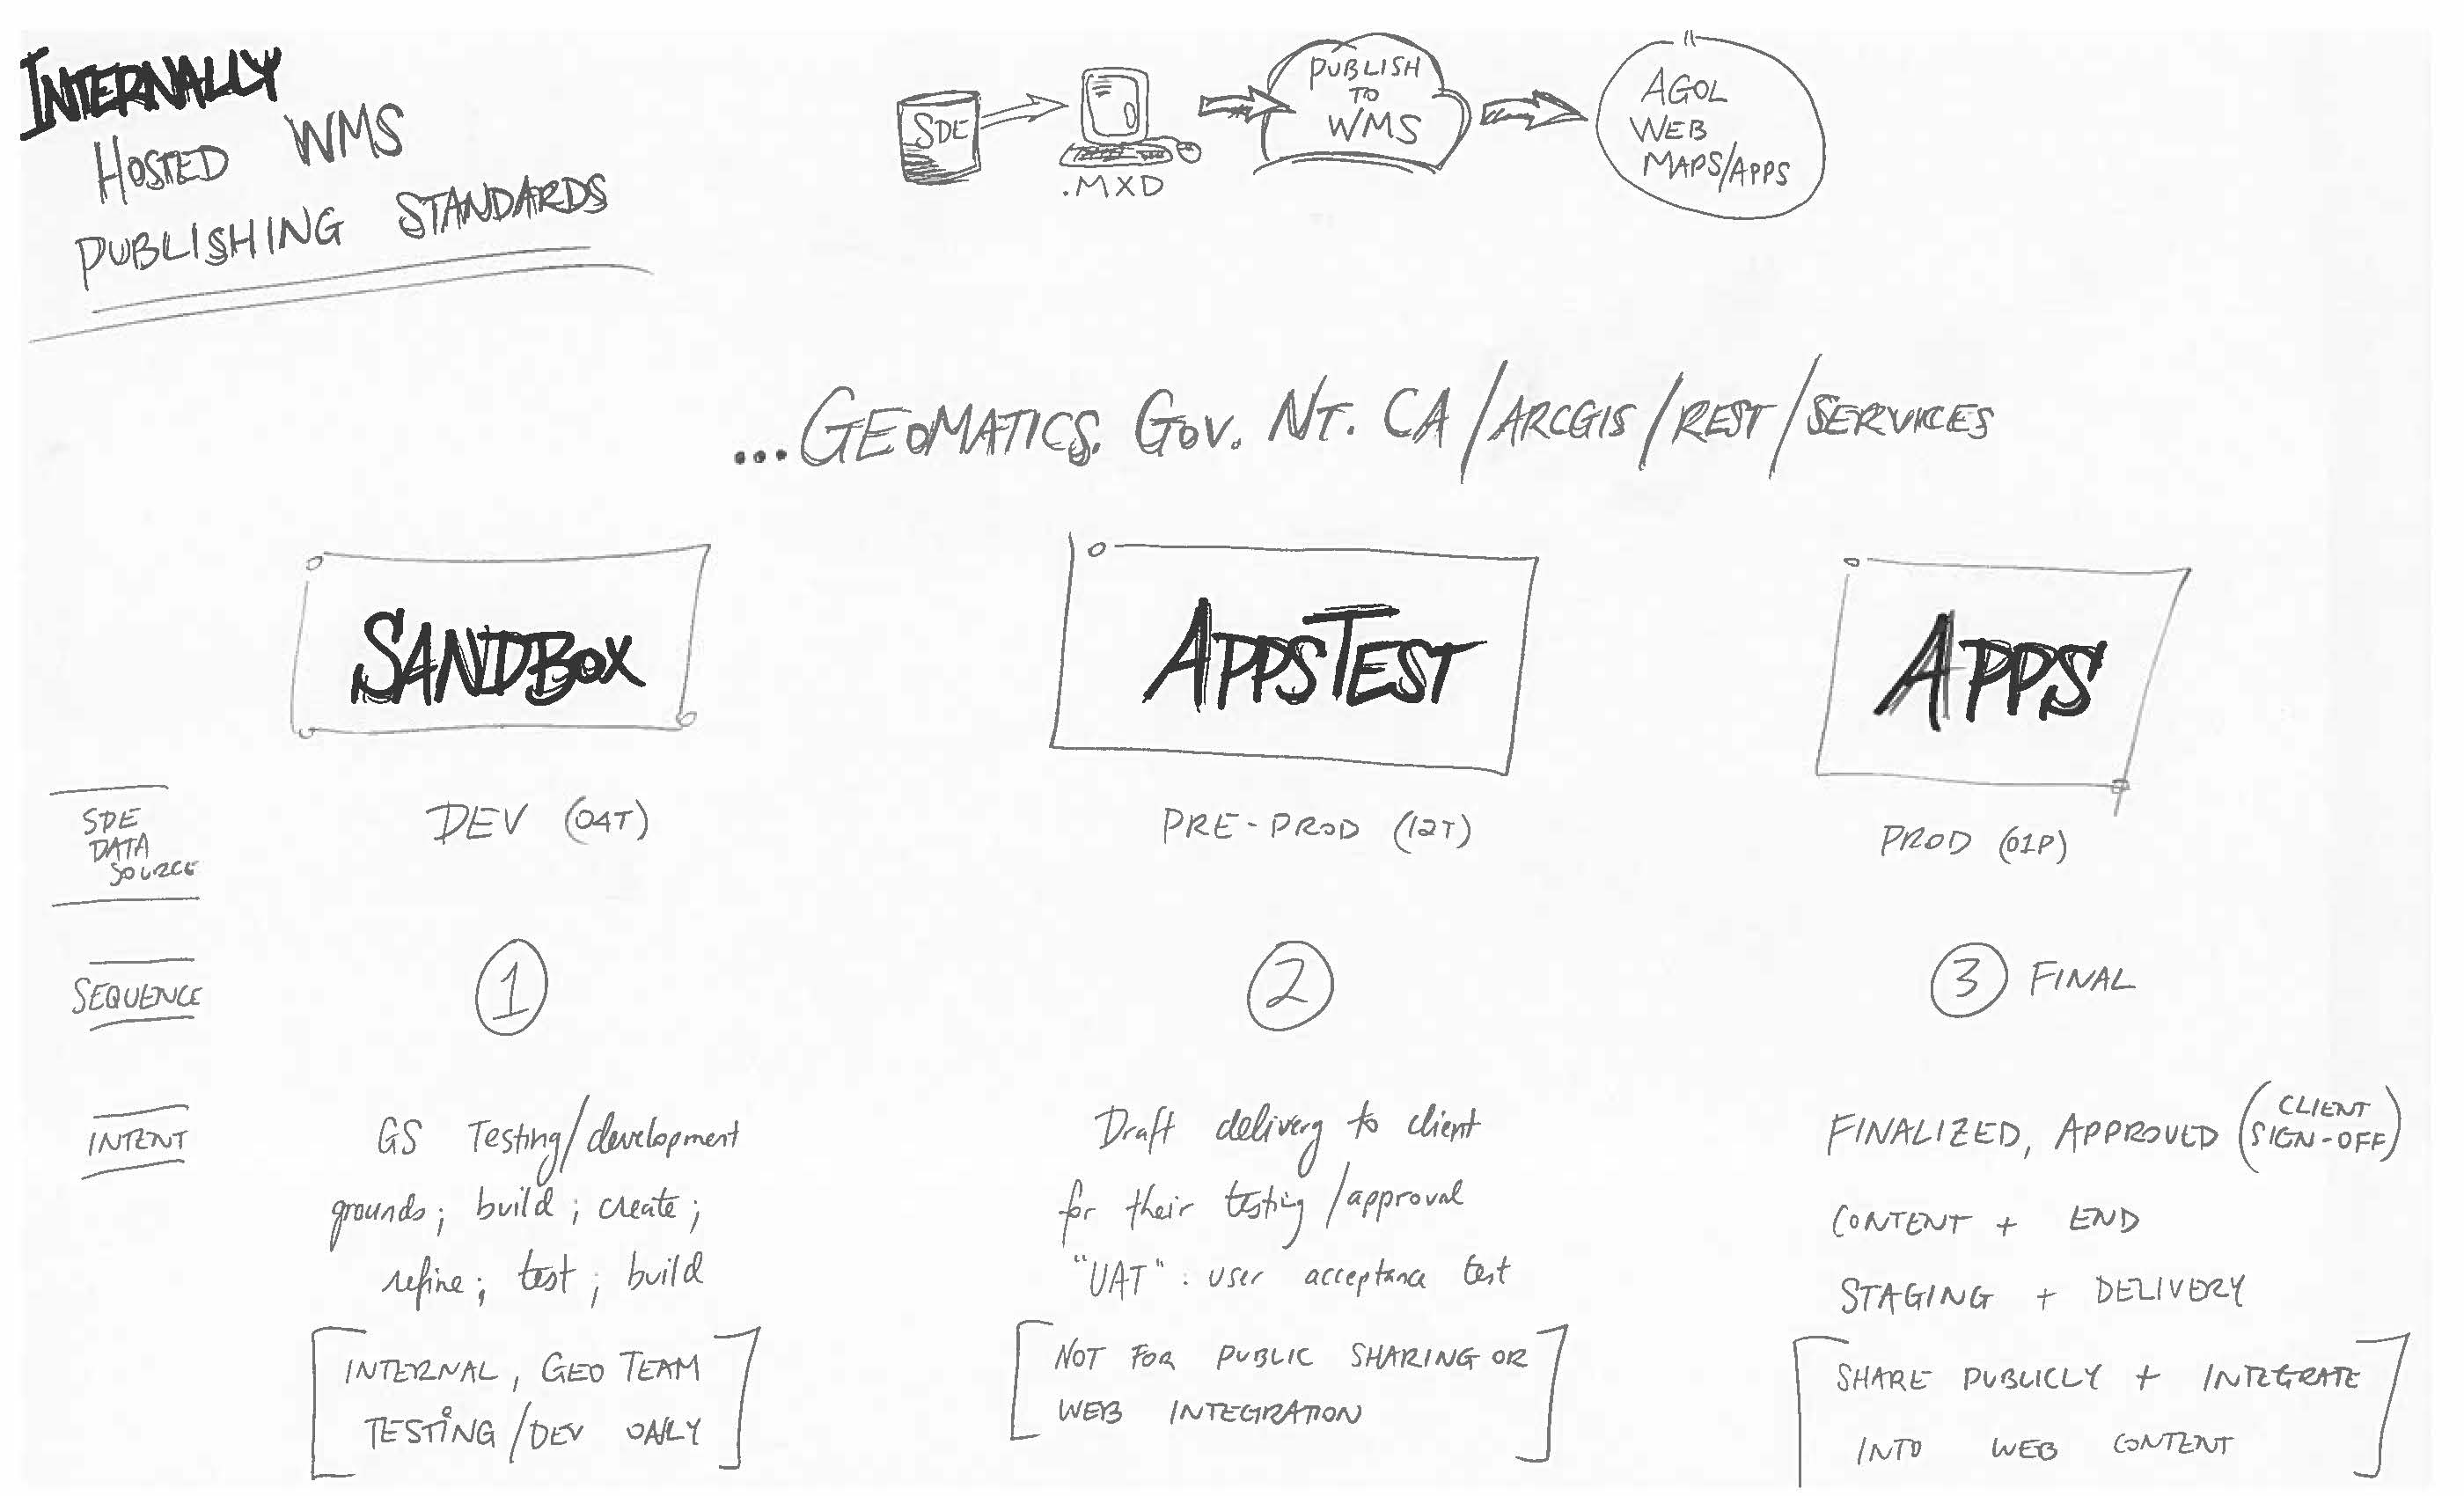 INTERNALLY
HOSTED WMS
PUBLISHING STANDARDS
SDE
.MXD
PUBLISH
TO
WMS
AGOL
WEB
MAPS/APPS
...GEOMATICS. GOV. NT. CA/ARCGIS/REST/SERVICES
SANDBOX
APPSTEST
APPS
SDE
DATA
SOURCE
DEV (04T)
PRE-PROD (12T)
PROD (01P)
SEQUENCE
1
2
3 FINAL
INTENT
GS Testing/development
grounds; build; create;
refine; test; build
[INTERNAL, GEO TEAM
TESTING/DEV ONLY]
Draft delivery to client
for their testing/approval
"UAT": user acceptance test
[NOT FOR PUBLIC SHARING OR
WEB INTEGRATION]
FINALIZED, APPROVED (CLIENT
SIGN-OFF)
CONTENT + END
STAGING + DELIVERY
[SHARE PUBLICLY + INTEGRATE
INTO WEB CONTENT]